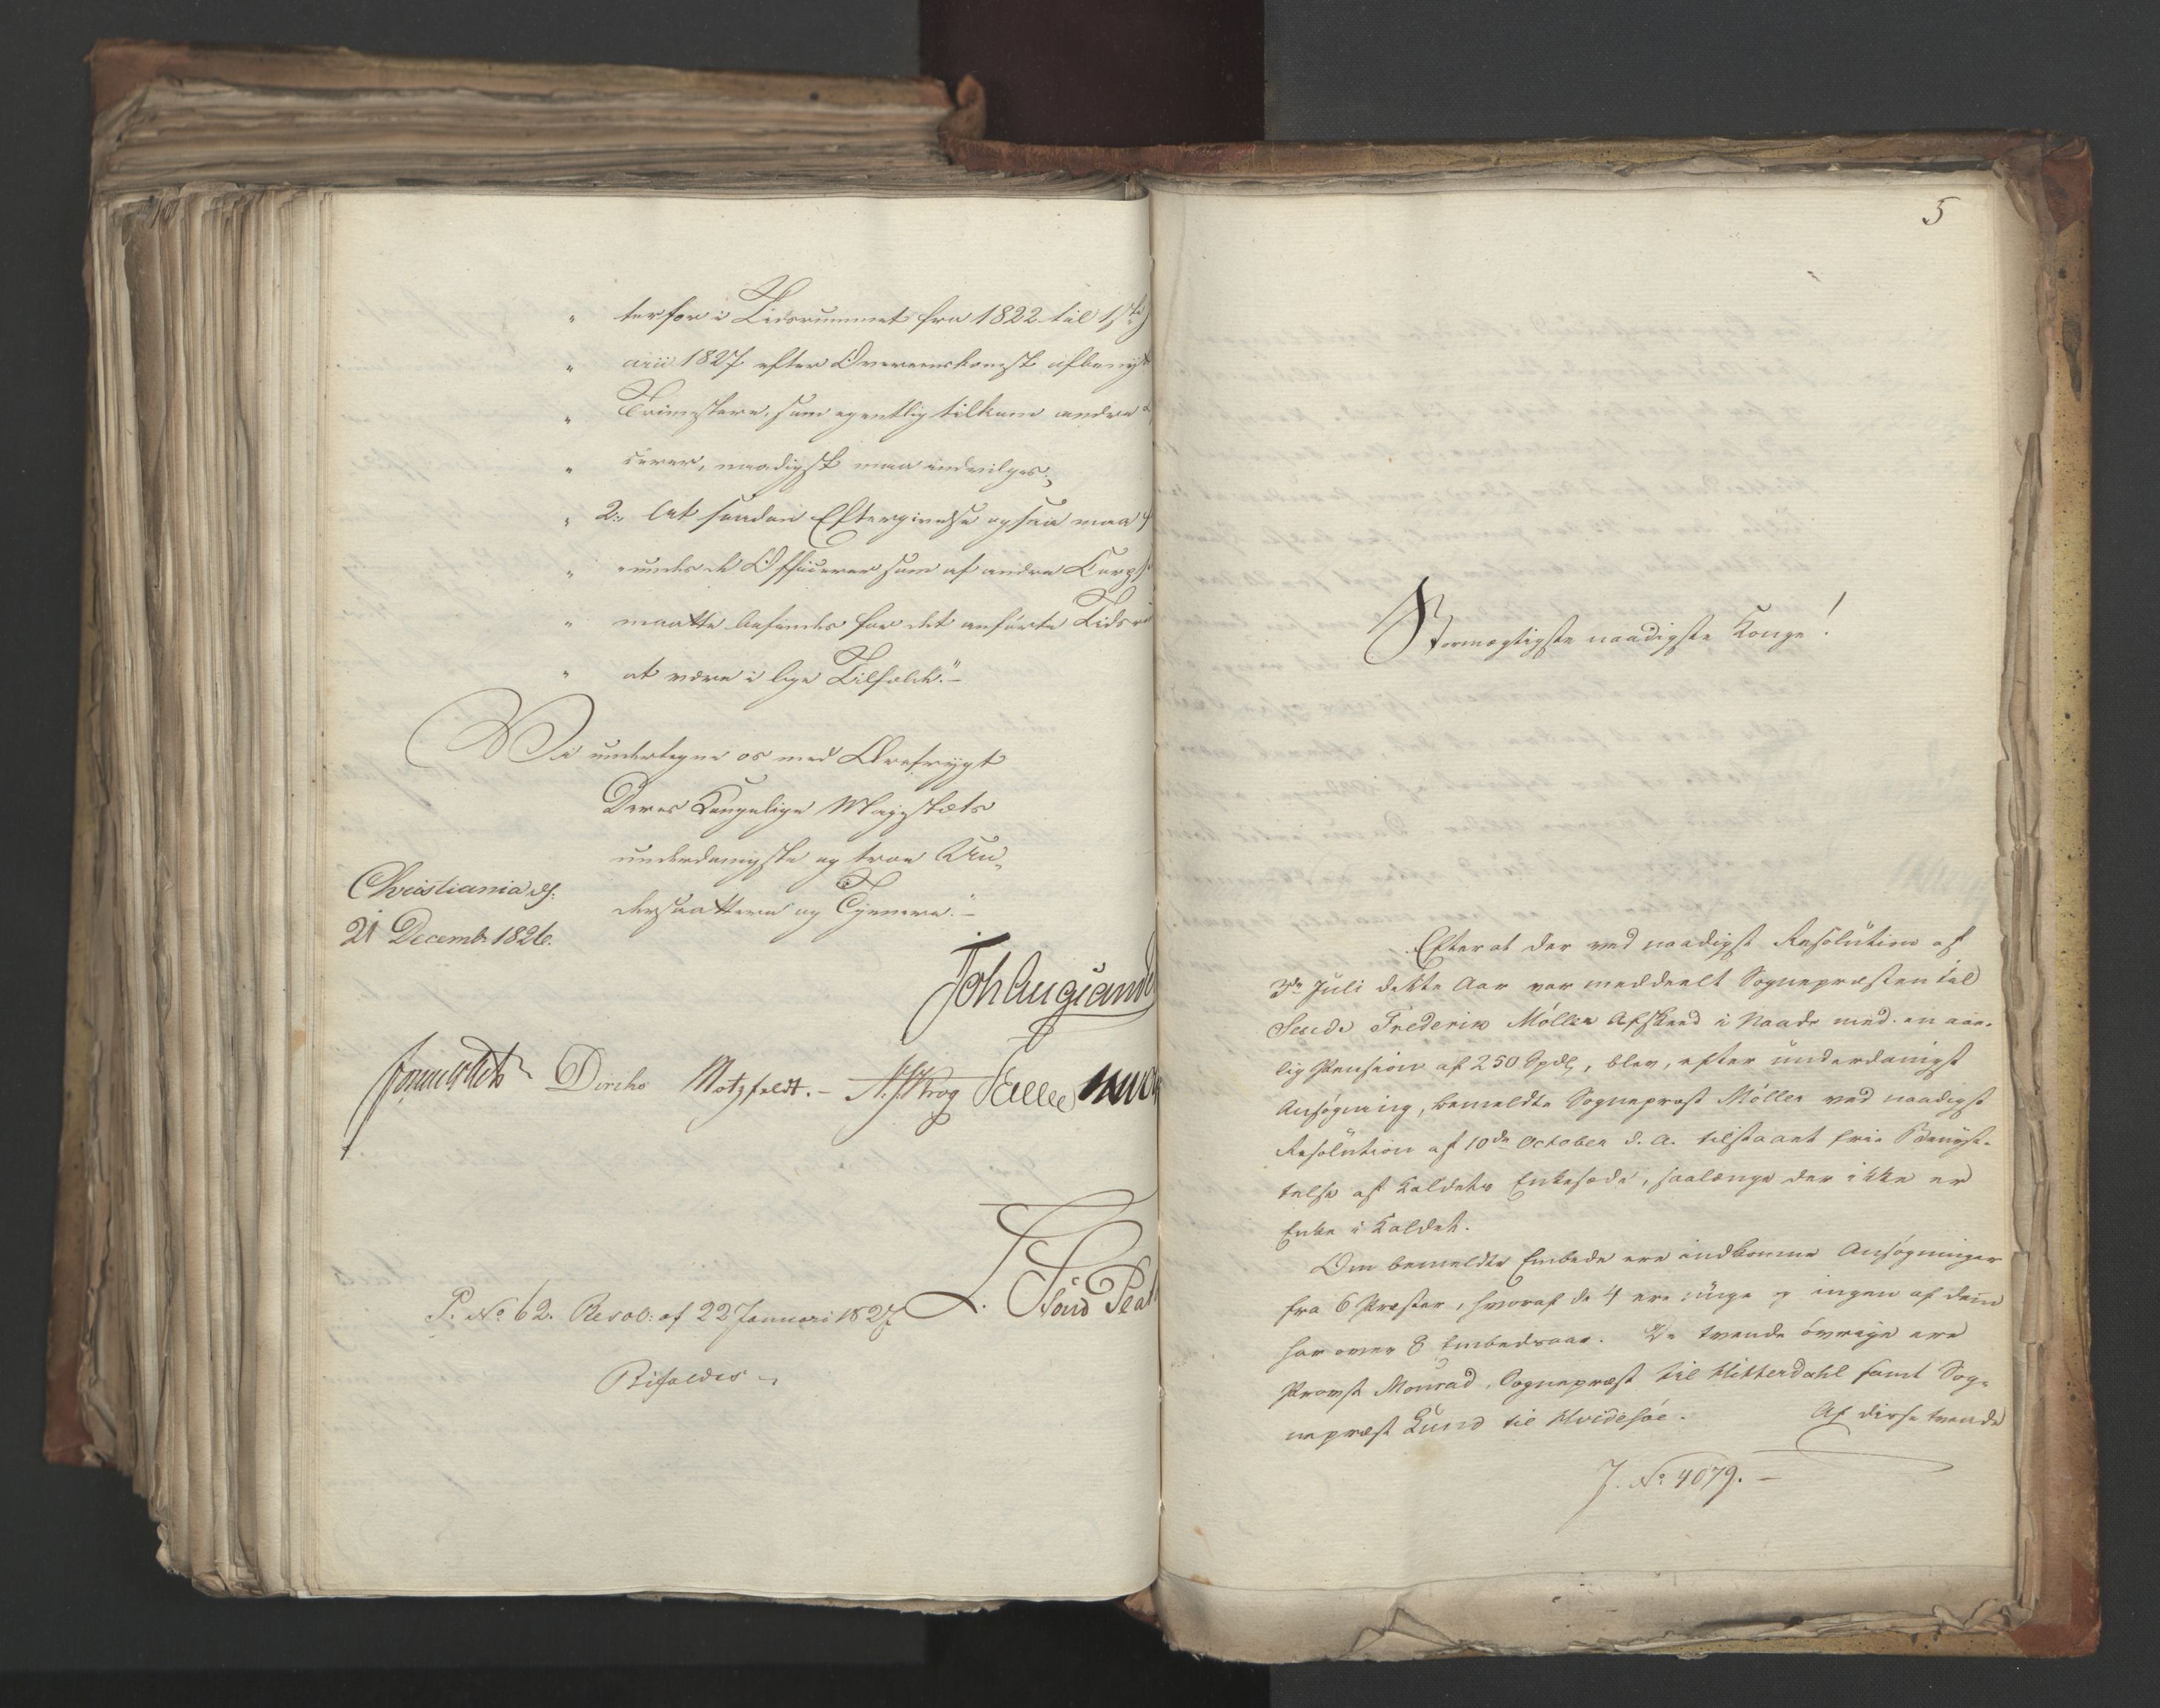 " terfor i Tidsrummet fra 1822 til 1ste J
" arii 1827 efter Overeenskomst afbenyt
" Trimstere, som egentlig tilkom andre
" cerer, naadigst maa indvilges;
" 2: At saadan Eftergivelse ogsaa maa
" unde de Officerer som af andre Corps
" maatte befindes for det anførte Tidsr
" at være i lige Tilfælde."—
Vi undertegne os med Ærefrygt
Deres Kongelige Majestæts
underdanigste og troe Un-
dersaattere og Tjenere.—
Christiania d:
21 Decemb. 1826.
Joh Aug Sande
Diriks Motzfeldt.— N. J. Krog
P. No 62. Resol: af 22 Januari 1827
Bifaldes
5
Stormægtigste naadigste Konge!
Efterat der ved naadigst Resolution af
3de Juli dette Aar var meddeelt Sognepræsten til
Seude Frederik Møller Afskeed i Naade med en aar-
lig Pension af 250 Spdlr, blev, efter underdanigst
Ansøgning, bemeldte Sognepræst Møller ved naadigst
Resolution af 10de October d. A. tilstaaet frie Benyt-
telse af Kaldets Enkesæde, saalænge der ikke er
Enke i Kaldet.
Om bemeldte Embede ere indkomne Ansøgninger
fra 6 Præster, hvoraf de 4 ere unge og ingen af dem
har over 8 Embedsaar. De tvende øvrige ere
Provst Monrad, Sognepræst til Hitterdahl samt Sog-
nepræst Lund til Hvidesøe. Af disse tvende
J. No 4079.—